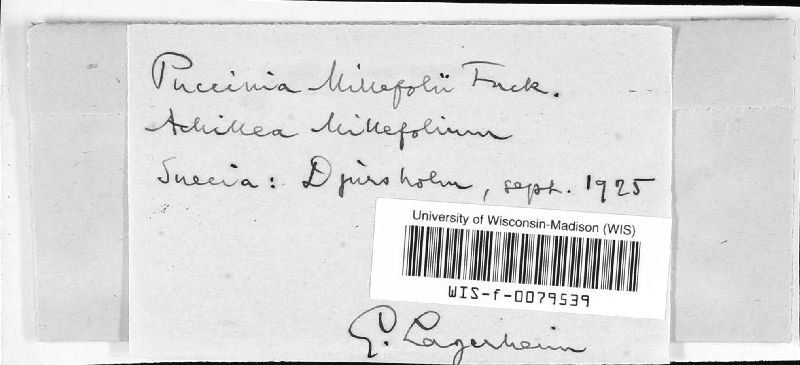 Puccinia Millefolii Fuck.
Achillea Millefolium
Suecia: Djursholm, sept. 1925
University of Wisconsin-Madison (WIS)
WIS-f-0079539
G. Lagerheim